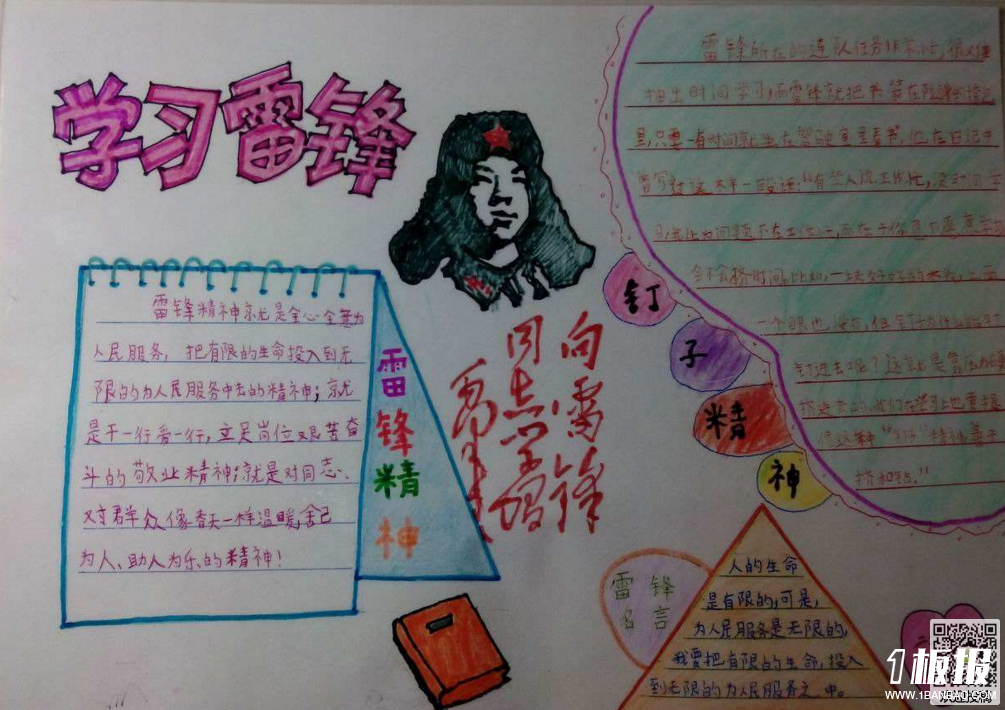 学习雷锋
雷锋精神就是全心全意为
人民服务，把有限的生命投入到无
限的为人民服务中去的精神；就
是干一行爱一行，立足岗位艰苦奋
斗的敬业精神；就是对同志、
对群众像春天一样温暖，舍己
为人、助人为乐的精神！
雷
锋
精
神
向雷锋
同志学习
毛泽东
雷锋所在的连队任务非常忙，很难
抽出时间学习，而雷锋就把书装在随身的挎包
里，只要一有时间就坐在驾驶室里看书，他在日记中
曾写过这样一段话：“有些人说工作忙，没时间学
习，我认为问题不在工作忙，而在于你愿不愿意学习
会不会挤时间，比如，一块好好的木头，上面
一个眼也没有，但钉子为什么能
钉进去呢？这就是靠压力硬
挤进去的，我们在学习上也要
这种“钉子”精神，善于
挤和钻。”
钉
子
精
神
雷锋
名言
人的生命
是有限的，可是，
为人民服务是无限的，
我要把有限的生命，投入
到无限的为人民服务之中。
1板报
WWW.1BANBAO.COM
欢迎投稿